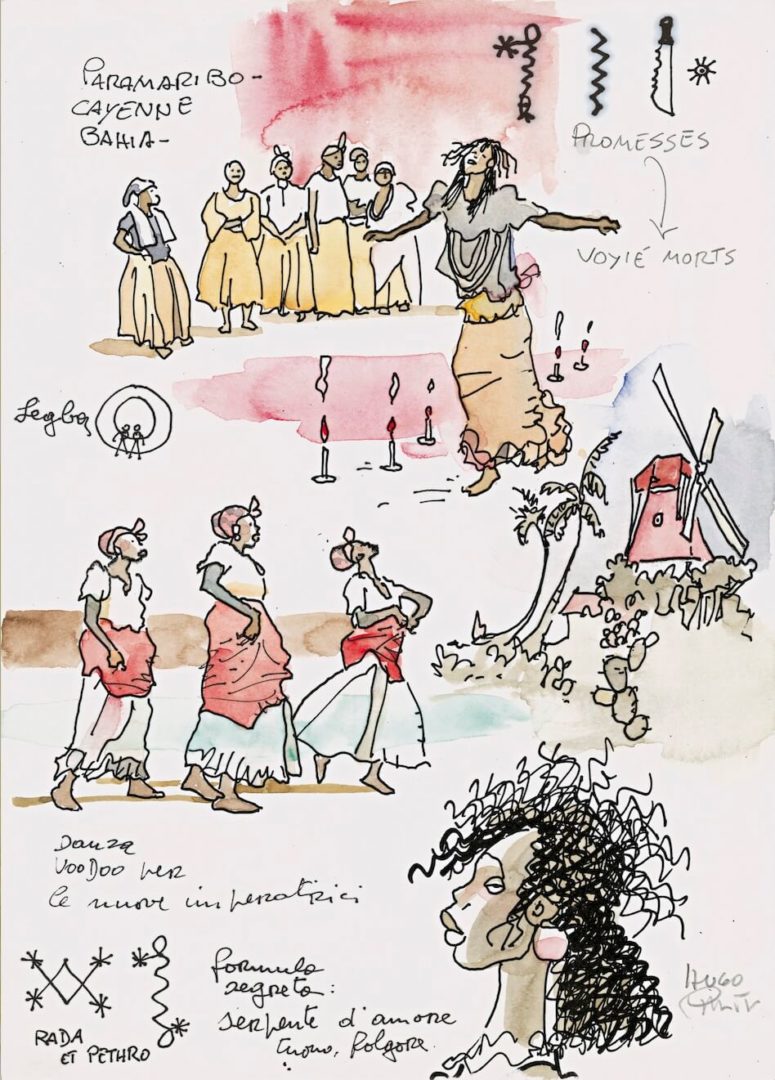 PARAMARIBO-
CAYENNE
BAHIA-
PROMESSES
VOYIÉ MORTS
Legba
Danza
VOODOO per
le nuove imperatrici
RADA
ET PETHRO
formula
segreta:
serpente d'amore
tuono, folgore.
HUGO
Pratt